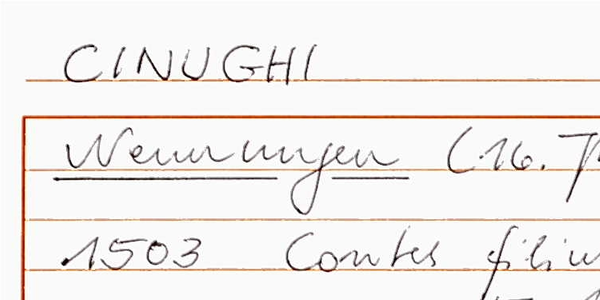 CINUGHI
Nennungen (16.
1503 Contes filiu